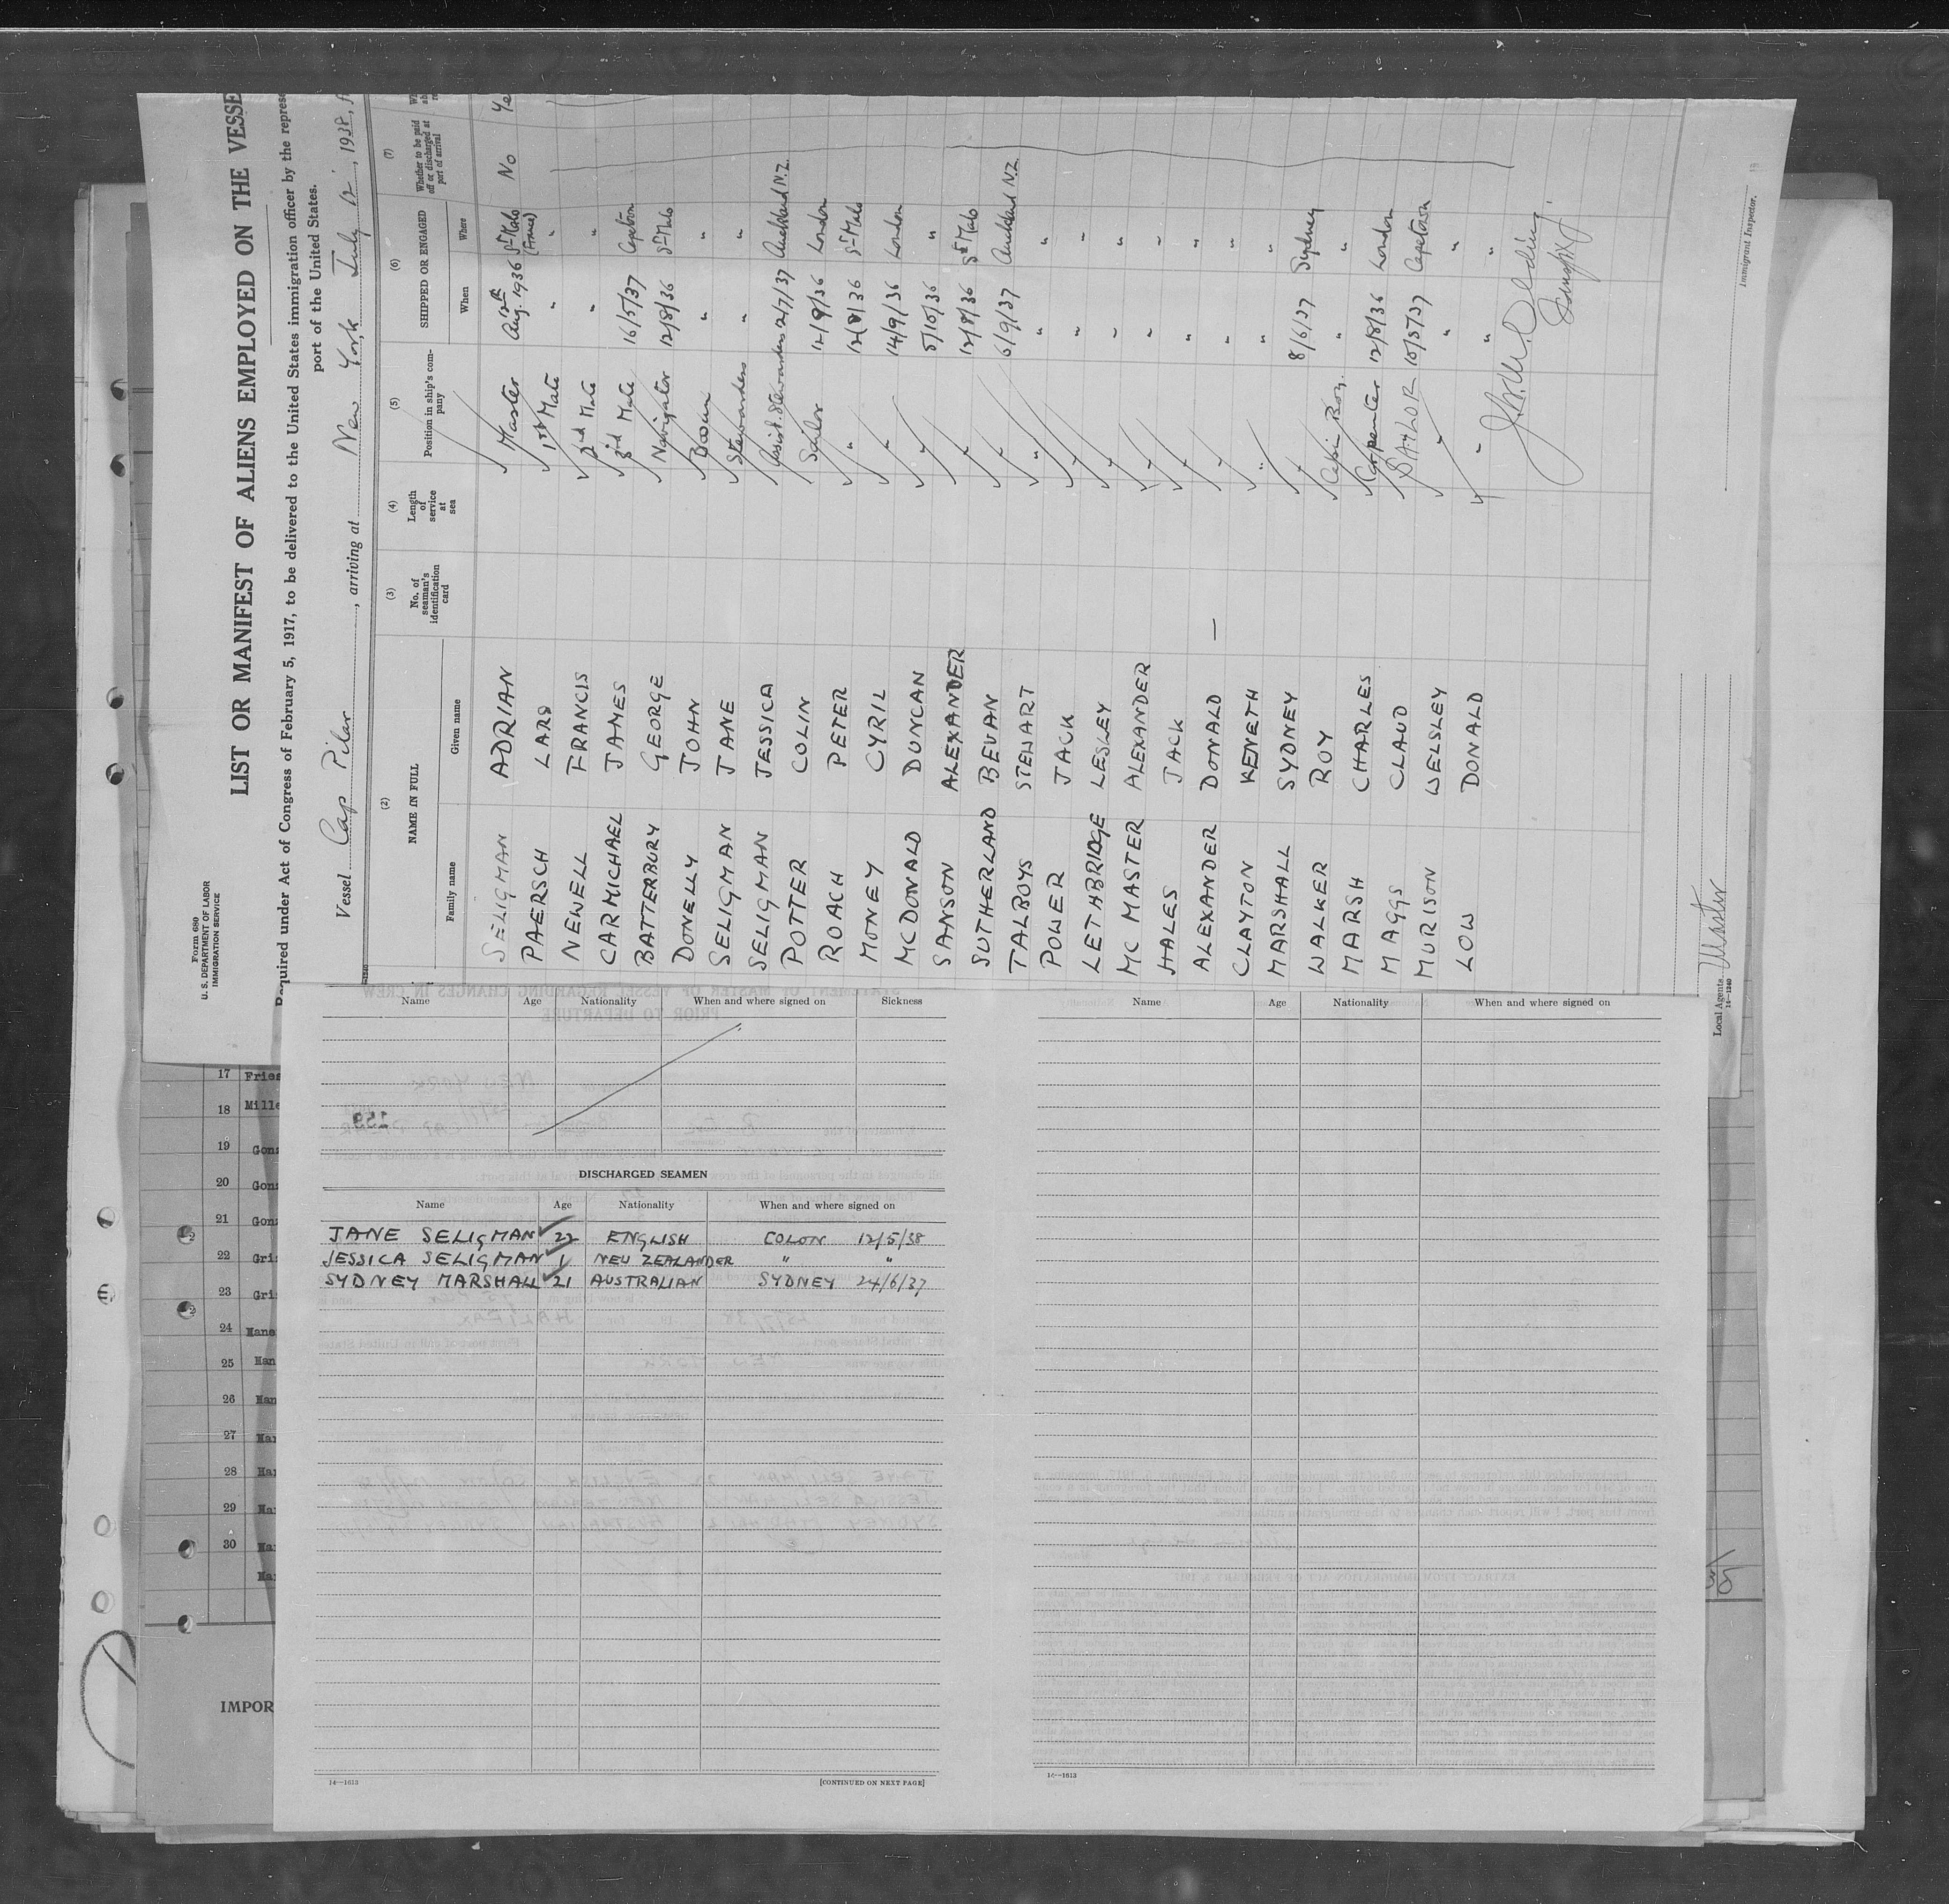 Form 680
U. S. DEPARTMENT OF LABOR
IMMIGRATION SERVICE
LIST OR MANIFEST OF ALIENS EMPLOYED ON THE VESSE
Required under Act of Congress of February 5, 1917, to be delivered to the United States immigration officer by the represe
port of the United States.
Vessel Cap Pilar, arriving at New York July 12, 1938, f
(2) (3) (4) (5) (6) (7)
NAME IN FULL No. of seaman's identification card Length of service at sea Position in ship's company SHIPPED OR ENGAGED Whether to be paid off or discharged at port of arrival
Family name Given name When Where
SELIGMAN ADRIAN Master 12th Aug. 1936 St Malo (France) No Ye
PAERSCH LARS 1st Mate " "
NEWELL FRANCIS 2nd Mate " "
CARMICHAEL JAMES 3rd Mate 16/5/37 Capetown
BATTERBURY GEORGE Navigator 12/8/36 St Malo
DONELLY JOHN Bosun " "
SELIGMAN JANE Stewardess " "
SELIGMAN JESSICA Assist. Stewardess 2/7/37 Auckland N.Z.
POTTER COLIN Sailor 12/9/36 London
ROACH PETER " 12/8/36 St Malo
MONEY CYRIL " 14/9/36 London
MCDONALD DUNCAN " 5/10/36 "
SANSON ALEXANDER " 12/8/36 St Malo
SUTHERLAND BEVAN " 6/9/37 Auckland N.Z.
TALBOYS STEWART " " "
POWER JACK " " "
LETHBRIDGE LESLEY " " "
MC MASTER ALEXANDER " " "
HALES JACK " " "
ALEXANDER DONALD — " " "
CLAYTON KENETH " " "
MARSHALL SYDNEY " 8/6/37 Sydney
WALKER ROY Cabin Boy " "
MARSH CHARLES Carpenter 12/8/36 London
MAGGS CLAUD SAILOR 10/5/37 Capetown
MURISON WELSLEY " " "
LOW DONALD " " "
Local Agents
Master
14—1240
Immigrant Inspector.
Name Age Nationality When and where signed on Sickness
DISCHARGED SEAMEN
Name Age Nationality When and where signed on
JANE SELIGMAN 22 ENGLISH COLON 12/5/38
JESSICA SELIGMAN 1 NEW ZEALANDER " "
SYDNEY MARSHALL 21 AUSTRALIAN SYDNEY 24/6/37
14—1613
[CONTINUED ON NEXT PAGE]
Name Age Nationality When and where signed on
14—1613
17 Fries
18 Mille
19 Gonz
20 Gonz
21 Gonz
22 Gri
23 Gri
24 Hane
25 Han
26 Han
27 Har
28 Har
29 Har
30 Har
Har
IMPOR